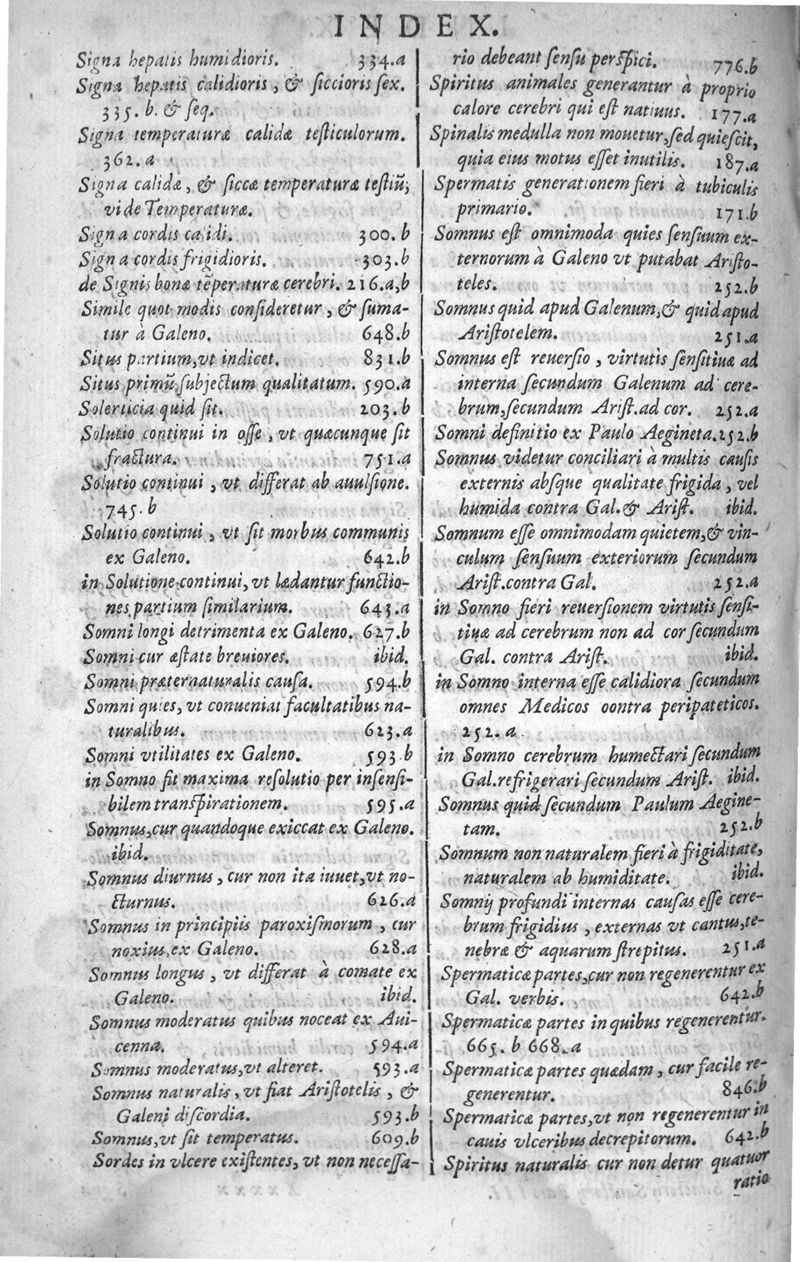 INDEX.
Signa hepatis humidioris. 334.a
Signa hepatis calidioris, & ſiccioris ſex.
335. b. & ſeq.
Signa temperaturæ calidæ teſticulorum.
362. a
Signa calidæ, & ſiccæ temperaturæ teſtiũ,
vide Temperaturæ.
Signa cordis calidi. 300. b
Signa cordis frigidioris. 303. b
de Signis bonæ tẽperaturæ cerebri. 216.a,b
Simile quot modis conſideretur, & ſuma-
tur à Galeno. 648.b
Situs partium, vt indicet. 831.b
Situs primũ ſubjectum qualitatum. 590.a
Solertia quid ſit. 203. b
Solutio continui in oſſe, vt quæcunque ſit
fractura. 751.a
Solutio continui, vt differat ab auulſione.
745. b
Solutio continui, vt ſit morbus communis
ex Galeno. 642.b
in Solutione continui, vt lædantur functio-
nes partium ſimilarium. 643.a
Somni longi detrimenta ex Galeno. 627.b
Somni cur æſtate breuiores. ibid.
Somni præternaturalis cauſa. 594.b
Somni quies, vt conueniat facultatibus na-
turalibus. 623.a
Somni vtilitates ex Galeno. 593 b
in Somno fit maxima reſolutio per inſenſi-
bilem tranſpirationem. 595.a
Somnus, cur quandoque exiccat ex Galeno.
ibid.
Somnus diurnus, cur non ita iuuet, vt no-
cturnus. 626.a
Somnus in principiis paroxiſmorum, cur
noxius, ex Galeno. 628.a
Somnus longus, vt differat à comate ex
Galeno. ibid.
Somnus moderatus quibus noceat ex Aui-
cenna. 594.a
Somnus moderatus, vt alteret. 593.a
Somnus naturalis, vt fiat Ariſtotelis, &
Galeni diſcordia. 593.b
Somnus, vt ſit temperatus. 609.b
Sordes in vlcere exiſtentes, vt non neceſſa-
rio debeant ſenſu perſpici. 776.b
Spiritus animales generantur à proprio
calore cerebri qui eſt natiuus. 177.a
Spinalis medulla non mouetur, ſed quieſcit,
quia eius motus eſſet inutilis. 187.a
Spermatis generationem fieri à tubiculis
primario. 171.b
Somnus eſt omnimoda quies ſenſuum ex-
ternorum à Galeno vt putabat Ariſto-
teles. 252.b
Somnus quid apud Galenum, & quid apud
Ariſtotelem. 251.a
Somnus eſt reuerſio, virtutis ſenſitiuæ ad
interna ſecundum Galenum ad cere-
brum, ſecundum Ariſt. ad cor. 252.a
Somni definitio ex Paulo Aegineta. 252.b
Somnus videtur conciliari à multis cauſis
externis abſque qualitate frigida, vel
humida contra Gal. & Ariſt. ibid.
Somnum eſſe omnimodam quietem, & vin-
culum ſenſuum exteriorum ſecundum
Ariſt. contra Gal. 252.a
in Somno fieri reuerſionem virtutis ſenſi-
tiuæ ad cerebrum non ad cor ſecundum
Gal. contra Ariſt. ibid.
in Somno interna eſſe calidiora ſecundum
omnes Medicos oontra peripateticos.
252. a
in Somno cerebrum humectari ſecundum
Gal. refrigerari ſecundum Ariſt. ibid.
Somnus quid ſecundum Paulum Aegine-
tam. 252.b
Somnum non naturalem fieri à frigiditate,
naturalem ab humiditate. ibid.
Somnij profundi internas cauſas eſſe cere-
brum frigidius, externas vt cantus, te-
nebræ & aquarum ſtrepitus. 251.a
Spermaticæ partes, cur non regenerentur ex
Gal. verbis. 642.b
Spermaticæ partes in quibus regenerentur.
665. b 668. a
Spermaticæ partes quædam, cur facile re-
generentur. 846.b
Spermaticæ partes, vt non regenerentur in
cauis vlceribus decrepitorum. 642.b
Spiritus naturalis cur non detur quatuor
ratio